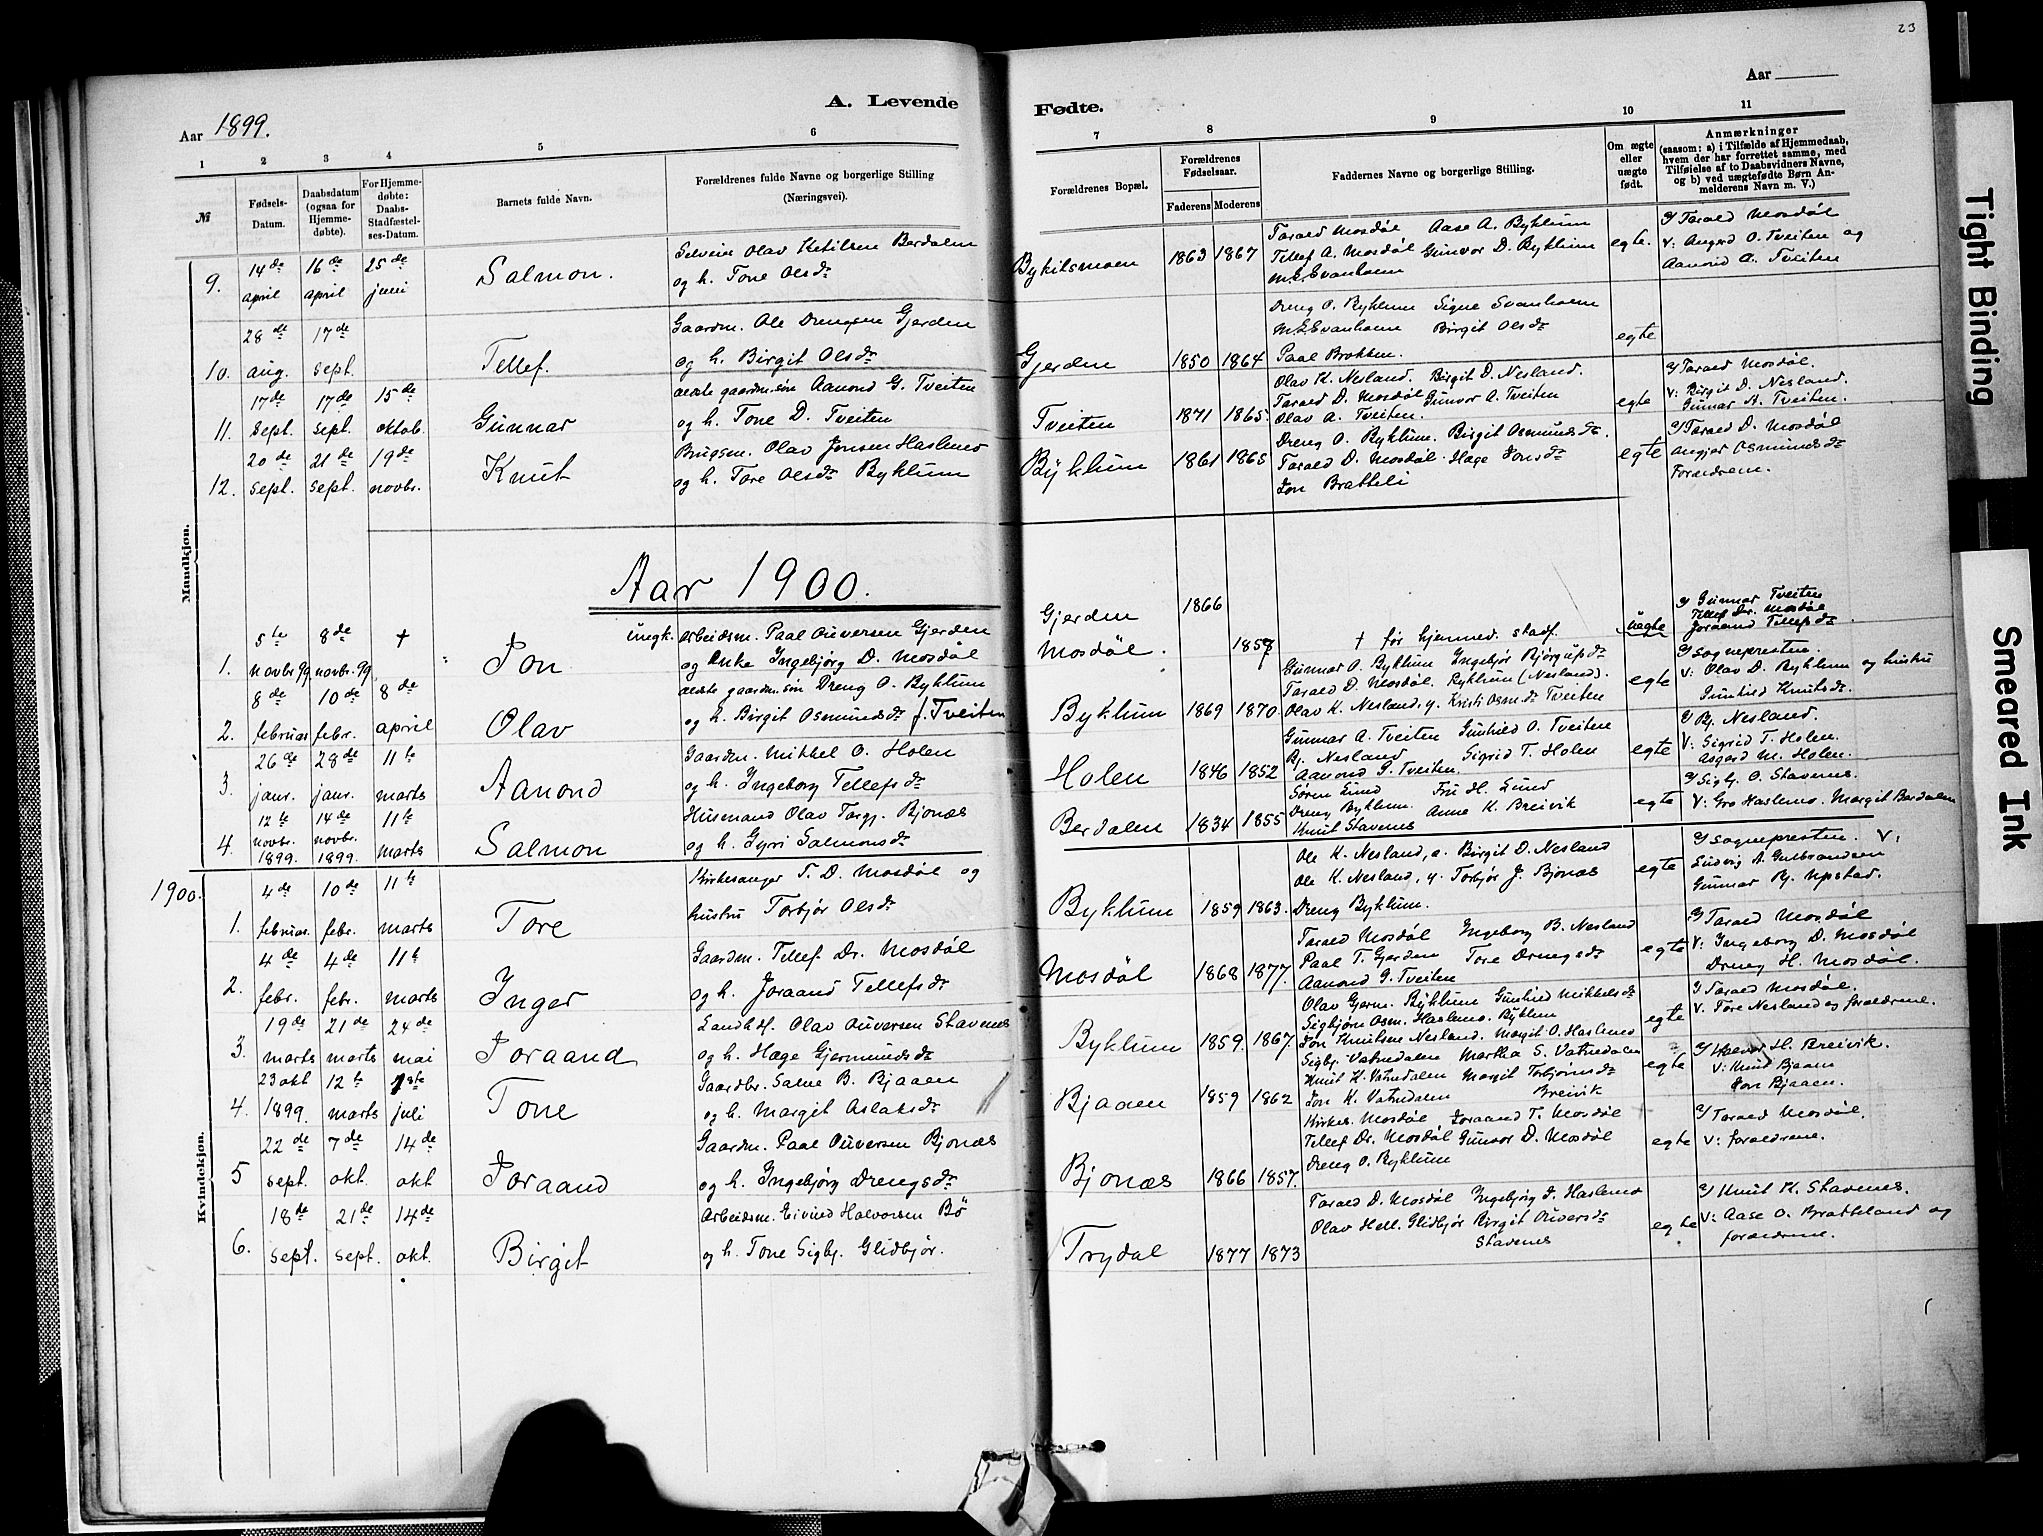 23
A. Levende
Fødte.
Aar 1899.
Aar
1 2 3 4 5 6 7 8 9 10 11
№
Fødsels-Datum.
Daabsdatum (ogsaa for Hjemme-døbte).
For Hjemme-døbte: Daabs-Stadfæstel-ses-Datum.
Barnets fulde Navn.
Forældrenes fulde Navne og borgerlige Stilling (Næringsvei).
Forældrenes Bopæl.
Forældrenes Fødselsaar.
Faderens Moderens
Faddernes Navne og borgerlige Stilling.
Om ægte eller uægte født.
Anmærkninger (saasom: a) i Tilfælde af Hjemmedaab, hvem der har forrettet samme, med Tilføielse af to Daabsvidners Navne, og b) ved uægtefødte Børn An-melderens Navn m. V.)
Mandkjøn.
9. 14de april 16de april 25de juni Salmon. Selveier Olav Ketilsen Berdalen
og h. Tone Olsdr
Bykilsmoen 1863 1867
Tarald Mosdøl Aase A. Byklum
Tellef A. Mosdøl Gunvor D. Byklum
egte.
Tarald Mosdøl
V: Angerd O. Tveiten og
Aanond A. Tveiten
10. 28de aug. 17de sept. Tellef. Gaardm. Ole Drengsen Gjerden
og h. Birgit Olsdr
Gjerden 1850 1864
Dreng O. Byklum Signe Svanholm
Birgit Olsdr
Paal Brotten.
egte
11. 17de sept. 17de sept. 15de oktob. Gunnar ældste gaardm.søn Aanond G. Tveiten
og h. Tone D. Tveiten
Tveiten 1871 1865.
Olav K. Nesland. Birgit D. Nesland.
Tarald D. Mosdøl Gunvor A. Tveiten
Olav A. Tveiten.
egte
Tarald Mosdøl.
V: Birgit D. Nesland.
Gunnar A. Tveiten.
12. 20de sept. 21de sept. 19de novbr. Knut Brugsm. Olav Jonsen Haslemo
og h. Tore Olsdr Byklum
Byklum 1861 1865
Dreng O. Byklum. Birgit Osmundsdr.
Tarald D. Mosdøl. Hæge Jonsdr
Jon Bratteli
egte
Tarald D. Mosdøl
Osmundsdr
Forældrene.
Aar 1900.
1. 5te novbr 99 8de novbr. 99 † Jon ungk. Arbeidsm. Paal Ouversen Gjerden
og Enke Ingebjørg D. Mosdøl
Gjerden 1866
Mosdøl. 1857
† før hjemmed. stadf.
uegte
Gunnar Tveiten
Tellef Dr. Mosdøl
Joraand Tellefsdr.
2. 8de februar 10de febr. 8de april Olav ældste gaardm.søn Dreng O. Byklum
og h. Birgit Osmundsdr f. Tveiten
Byklum 1869 1870
Gunnar O. Byklum Ingebjør Bjørgulfsdr
Tarald D. Mosdøl. Byklum (Nesland).
Olav K. Nesland, y. Kristi Osm.dr Tveiten
egte
Sognepresten.
V: Olav D. Byklum og hustru
Gunhild Knutsdr.
3. 26de janr. 28de janr. 11te marts Aanond Gaardm. Mikkel O. Holen
og h. Ingeborg Tellefsdr
Holen 1846 1852
Gunnar A. Tveiten Gunhild O. Tveiten
Bj. Nesland Sigrid T. Holen
Aanond G. Tveiten.
egte
Bj. Nesland.
V: Sigrid T. Holen.
Asgerd M. Holen.
4. 12te novbr. 1899. 14de novbr. 1899. 11te marts Salmon Husmand Olav Torgj. Bjonæs
og h. Gyri Salmonsdr
Berdalen 1834 1855
Søren Lund Fru H. Lund
Dreng Byklum. Anne K. Breivik
Knut Stavenes
egte
Sigbj. O. Stavenes.
V: Gro Haslemo. Margit Berdalen
Kvindekjøn.
1900.
1. 4de februar. 10de febr. 11te marts Tore Kirkesanger T. D. Mosdøl og
hustru Torbjør Olsdr
Byklum 1859 1863.
Ole K. Nesland, æ. Birgit D. Nesland
Ole K. Nesland, y. Torbjør J. Bjonæs
Dreng Byklum.
egte
Sognepresten. V:
Ludvig A. Gulbrandsen
Gunnar Bj. Upstad.
2. 4de febr. 4de febr. 11te marts Inger Gaardm. Tellef Dr. Mosdøl
og h. Joraand Tellefsdr
Mosdøl 1868 1877.
Tarald Mosdøl Ingeborg B. Nesland
Paal T. Gjerden Tore Drengsdr
Aanond G. Tveiten
egte
Tarald Mosdøl
V: Ingeborg D. Mosdøl
Dreng H. Mosdøl.
3. 19de marts 21de marts 24de mai Joraand Landh. Olav Ouversen Stavenes
og h. Hæge Gjermundsdr
Byklum 1859. 1867.
Olav Gjerm. Byklum Gunhild Mikkelsdr
Sigbjørn Osm. Haslemo. Byklum
Jon Knutsen Nesland. Margit O. Haslemo
egte
Tarald Mosdøl.
V: Tore Nesland og forældrene.
4. 23 okt 1899. 12te marts 1ste juli Tone Gaardbr. Salve B. Bjaaen
og h. Margit Aslaksdr
Bjaaen 1859 1862
Sigbj. Vatndalen Martha S. Vatndalen
Knut K. Vatndalen Margit Torbjørnsdr
Jon K. Vatndalen Breivik
egte
Halvor H. Breivik.
V: Knut Bjaaen
Jon Bjaaen.
5 22de sept. 7de okt. 14de okt Joraand Gaardm. Paal Ouversen Bjonæs
og h. Ingebjørg Drengsdr
Bjonæs 1866 1857.
Kirkes. Mosdøl Joraand T. Mosdøl
Tellef Dr. Mosdøl Gunvor D. Mosdøl
Dreng O. Byklum
egte
Tarald Mosdøl.
V: forældrene.
6. 18de sept. 21de sept. 14de okt. Birgit Arbeidsm. Eivind Halvorsen Bö
og h. Tone Sigbj. Glidbjør.
Trydal 1877 1873
Tarald D. Mosdøl Ingebjørg J. Haslemo
Olav Hell. Glidbjør Birgit Ouversdr
Stavenes
egte
Knut K. Stavenes.
V: Aase O. Bratteland og
forældrene.
Tight Binding
Smeared Ink